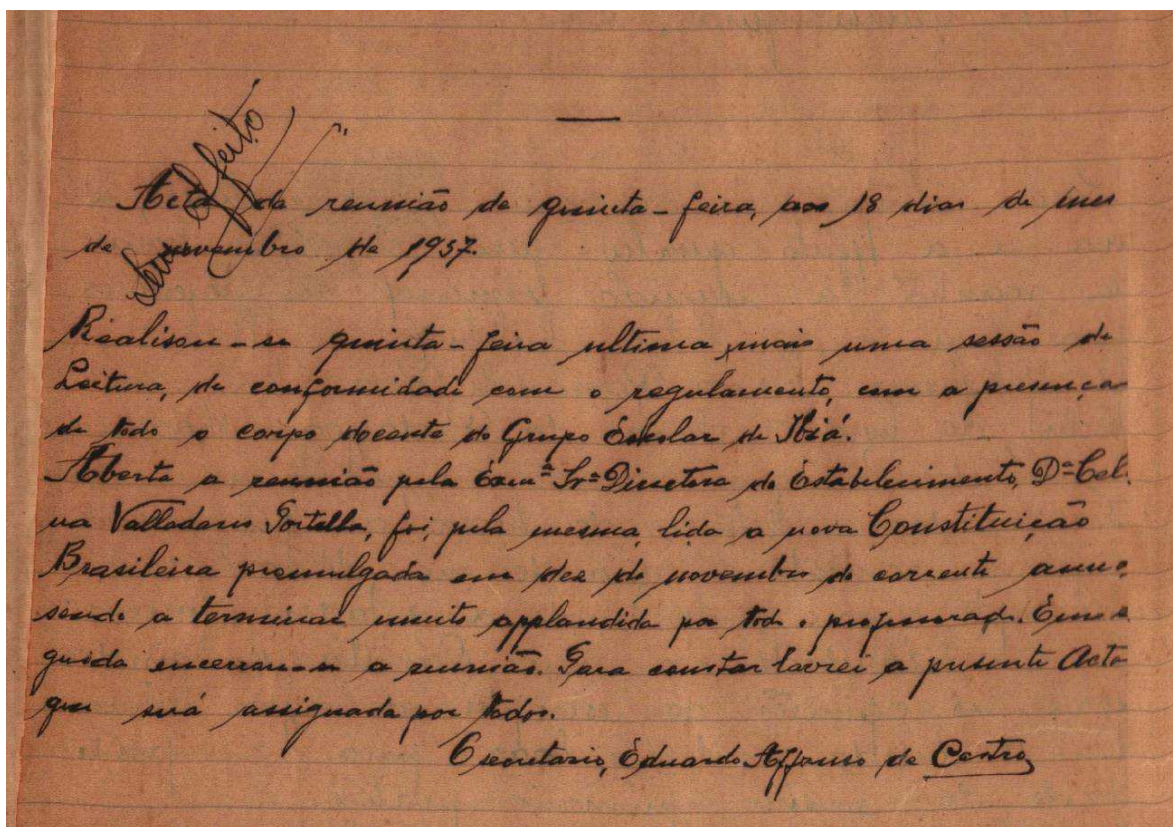 Sem effeito
Acta da reunião de quinta-feira, aos 18 dias do mes
de novembro de 1937.
Realisou-se quinta-feira ultima, mais uma sessão de
Leitura, de conformidade com o regulamento, com a presença
de todo o corpo docente do Grupo Escolar de Ibiá.
Aberta a reunião pela Exmª Srª Directora do Estabelecimento, Dª Cel.
na Valladares Portella, foi, pela mesma, lida a nova Constituição
Brasileira promulgada em dez de novembro do corrente anno,
sendo a terminar muito applaudida por todo o professorado. Em se
guida encerrou-se a reunião. Para constar lavrei a presente Acta
que será assignada por todos.
O secretario, Eduardo Affonso de Castro